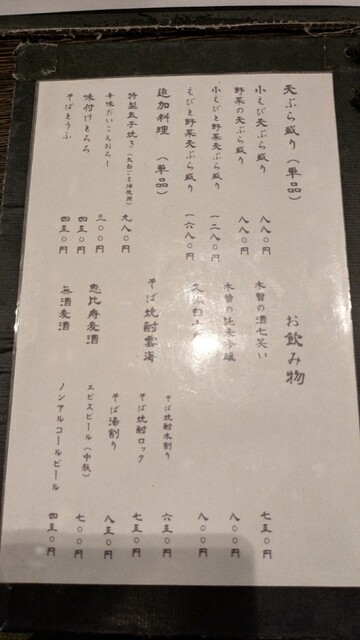 天ぷら盛り(単品)
小えび天ぷら盛り 八八〇円
野菜の天ぷら盛り 八八〇円
小えびと野菜天ぷら盛り 一二八〇円
えびと野菜天ぷら盛り 一六八〇円
追加料理(単品)
特製玉子焼き 九八〇円
辛味だいこんおろし 三〇〇円
味付けとろろ 四五〇円
そばとうふ 四五〇円
お飲み物
木曽の酒七笑い 七五〇円
木曽の純米吟醸 八〇〇円
八〇〇円
そば焼酎雲海
そば焼酎水割り 六五〇円
そば焼酎ロック 七五〇円
そば湯割り 八五〇円
恵比寿麦酒
エビスビール(中瓶) 七〇〇円
無酒麦酒
ノンアルコールビール 四五〇円